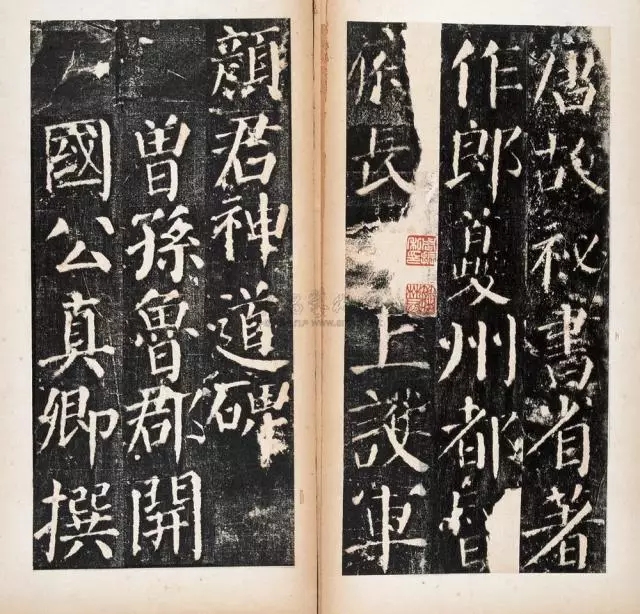 唐故祕書省著
作郎夔州都督
府長上護軍
顏君神道碑
曾孫魯郡開
國公真卿撰